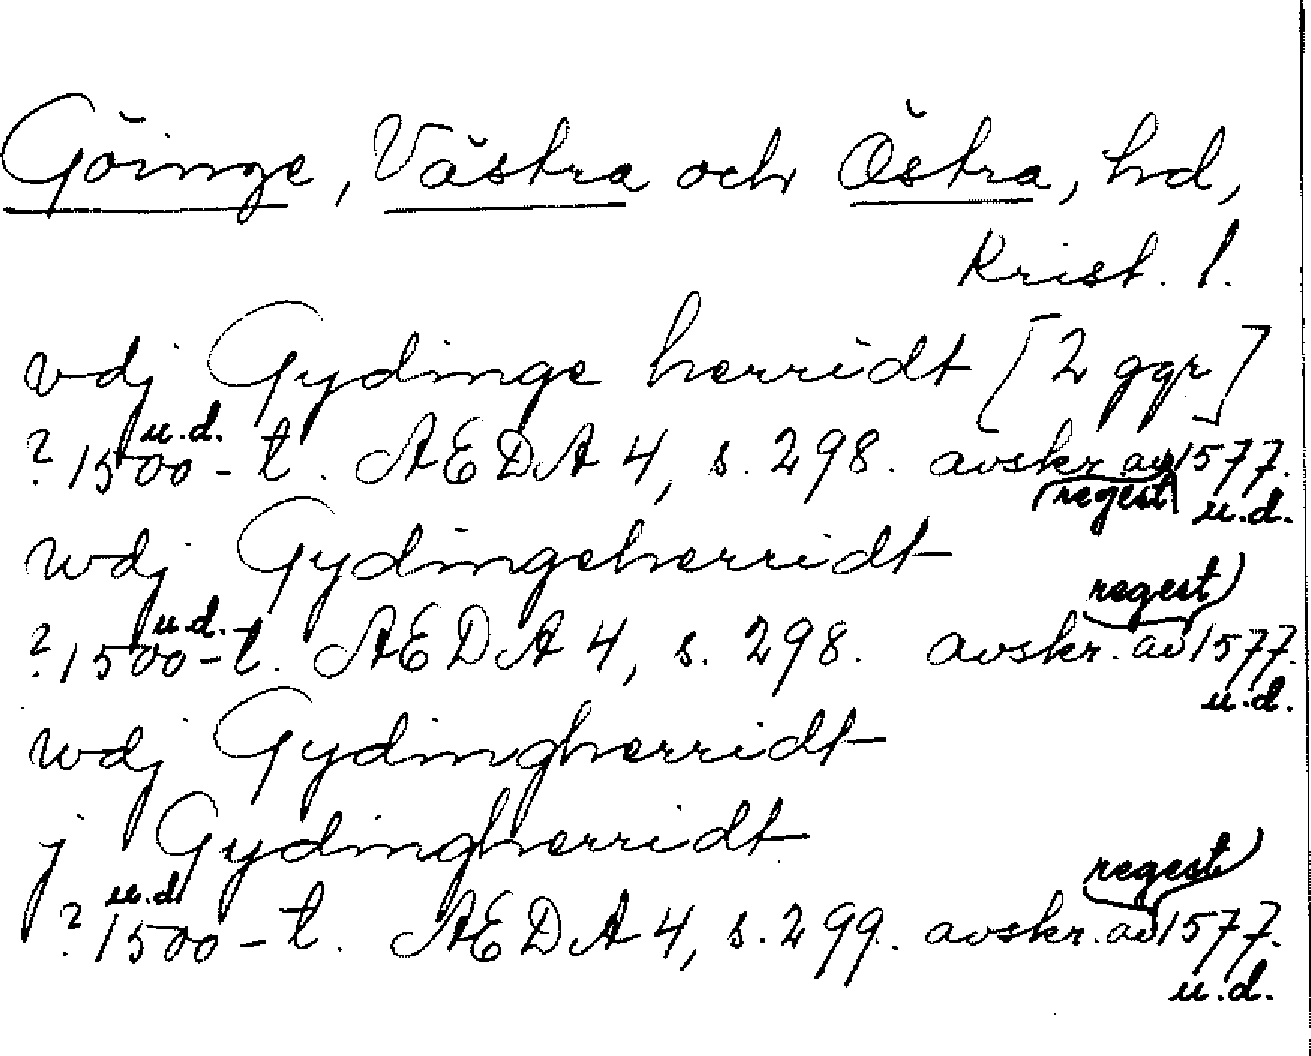 Göinge, Västra och Östra, hd,
Krist. l.
vdj Gydinge herridt [2 ggr]
? 1500-t. u.d. AEDA 4, s. 298. avskr. av regest 1577. u.d.
wdj Gydingeherridt
? 1500-t. u.d. AEDA 4, s. 298. avskr. av regest 1577. u.d.
wdj Gydingherridt
j Gydingherridt
? 1500-t. u.d. AEDA 4, s. 299. avskr. av regest 1577. u.d.